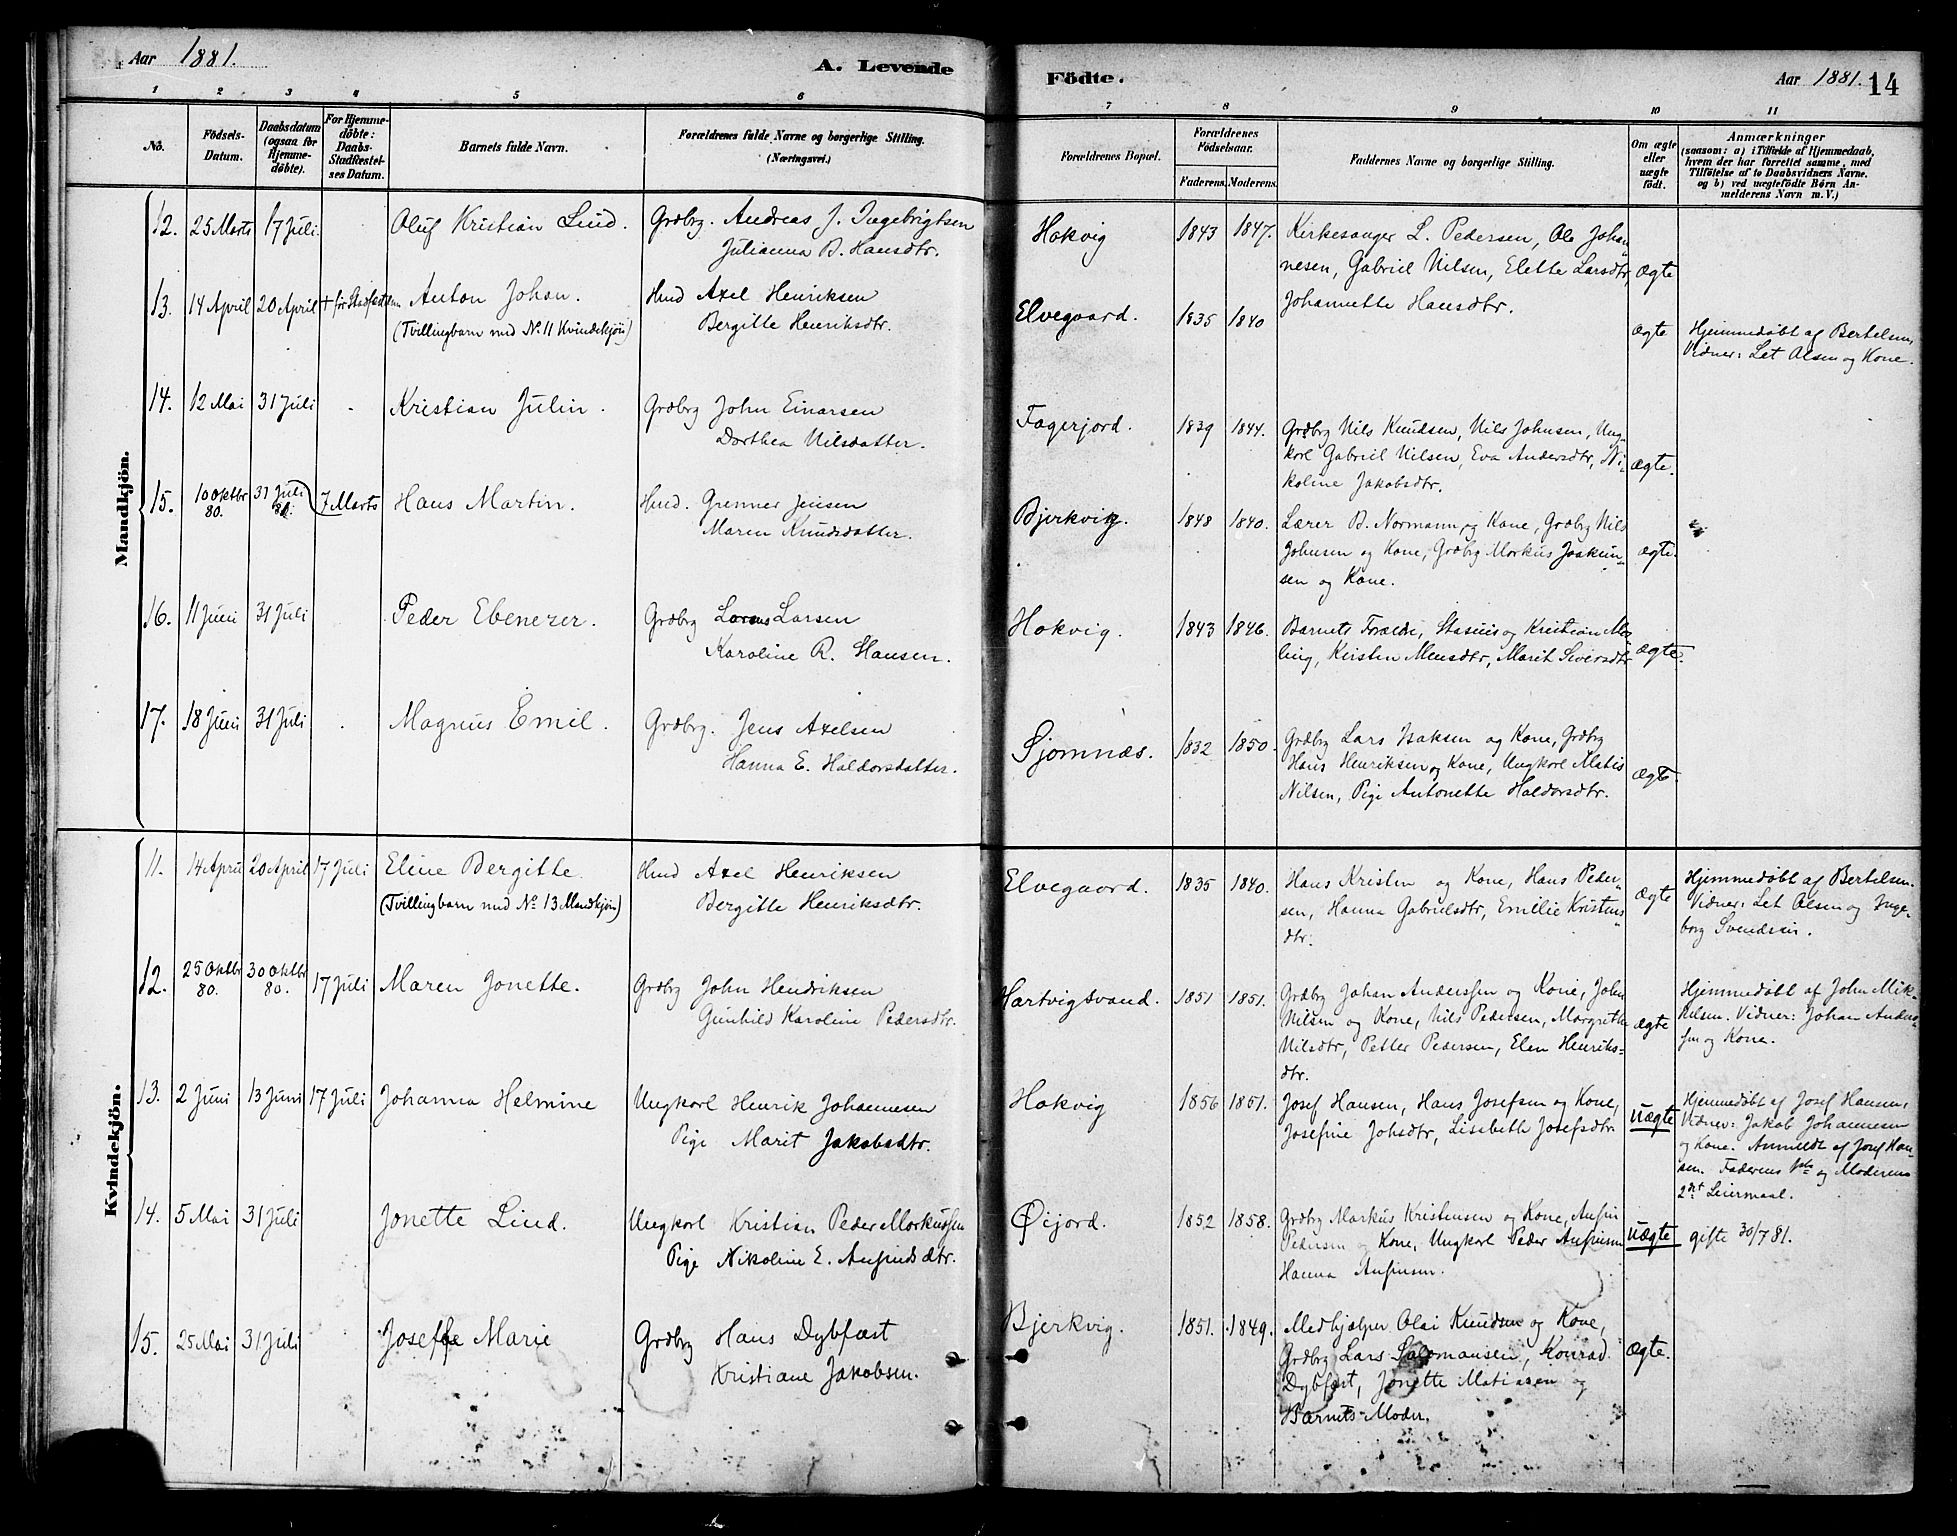 Aar 1881.
A. Levende
Födte.
Aar 1881. 14
1 2 3 4 5 6 7 8 9 10 11
No.
Födsels-
Datum.
Daabsdatum
(ogsaa for
Hjemme-
döbte).
For Hjemme-
döbte:
Daabs-
Stadfæstel-
ses Datum.
Barnets fulde Navn.
Forældrenes fulde Navne og borgerlige Stilling.
(Næringsvei.)
Forældrenes Bopæl.
Forældrenes
Födselsaar.
Faderens. Moderens.
Faddernes Navne og borgerlige Stilling.
Om ægte
eller
uægte
födt.
Anmærkninger
(saasom: a) i Tilfælde af Hjemmedaab,
hvem der har forrettet samme, med
Tilföielse af to Daabsvidners Navne.
og b) ved uægtefödte Börn An-
melderens Navn m. V.)
Mandkjön.
12. 25 Marts 17 Juli. Oluf Kristian Lind. Grdbrg. Andreas J. Ingebrigtsen
Julianna B. Hansdtr.
Hokvig 1843 1847. Kirkesanger L. Pedersen, Ole Johan„
nesen, Gabriel Nilsen, Elette Larsdtr,
Johannette Hansdtr.
ægte
13. 14 April 20 April + för Stadfæstelsen Anton Johan.
(Tvillingbarn med No 11 Kvindekjön)
Hmd Axel Henriksen
Bergitte Henriksdtr.
Elvegaard. 1835 1840 ægte
Hjemmedøbt af Bertelsen,
Vidner: Let Olsen og Kone.
14. 12 Mai 31 Juli - Kristian Julin. Grdbrg John Einarsen
Dorthea Nilsdatter.
Fagerjord. 1839 1844. Grdbrg Nils Knudsen, Nils Johnsen, Ung„
karl Gabriel Nilsen, Eva Andersdtr, Ni-
koline Jakobsdtr.
ægte.
15. 10 Oktbr 80. 31 Juli 81. 7 Marts Hans Martin. Hmd. Grenner Jensen
Maren Knudsdatter.
Bjerkvig. 1848 1840. Lærer B. Normann og Kone, Grdbrg Nils
Johnsen og Kone, Grdbrg Markus Joakim„
sen og Kone.
ægte.
16. 11 Juni 31 Juli Peder Ebenezer. Grdbrg Larsen
Karoline R. Hansen.
Hokvig. 1843 1846. Barnets Forælde, Stasius og Kristian Mo„
ling, Kirsten Mensdtr, Marit Siversdtr
ægte.
17. 18 Juni 31 Juli Magnus Emil. Grdbrg. Jens Axelsen
Hanna E. Haldorsdatter.
Sjomnæs. 1832 1850. Grdbrg Lars Isaksen og Kone, Grdbrg
Hans Henriksen og Kone, Ungkarl Matis
Nilsen, Pige Antonette Haldorsdtr.
ægte.
Kvindekjön.
11. 14 April 20 April 17 Juli Eline Bergitte.
(Tvillingbarn med No 13 Mandkjön)
Hmd Axel Henriksen
Bergitte Henriksdtr.
Elvegaard. 1835 1840. Hans Kristen og Kone, Hans Peder„
sen, Hanna Gabrielsdtr, Emilie Kristens„
dtr.
ægte
Hjemmedøbt af Bertelsen.
Vidner: Let Olsen og Inge-
borg Svendsen.
12. 25 Oktbr 80. 30 Oktbr 80. 17 Juli Maren Jonette. Grdbrg John Hendriksen
Gunhild Karoline Pedersdtr.
Hartvigsvand. 1851 1851. Grdbrg Johan Anderssen og Kone, John
Nilsen og Kone, Nils Pedersen, Margrethe
Nilsdtr, Petter Pedersen, Elen Henriks=
dtr.
ægte
Hjemmedøbt af John Mik-
kelsen. Vidner: Johan Anders„
sen og Kone.
13. 2 Juni 13 Juni 17 Juli Johanna Helmine Ungkarl Henrik Johannesen
Pige Marit Jakobsdtr.
Hokvig 1856 1851. Josef Hansen, Hans Josefsen og Kone,
Josefine Johsdtr, Lisebeth Josefsdtr
uægte
Hjemmedøbt af Josef Hansen.
Vidner: Jakob Johannesen
og Kone. Anmeldt af Josef Han-
sen. Faderens 1ste og Moderens
2det Leiermaal.
14. 5 Mai 31 Juli Jonette Lind. Ungkarl Kristian Peder Morkussen
Pige Nikoline E. Anfindsdtr.
Øijord. 1852 1858. Grdbrg Markus Kristensen og Kone, Anfin
Pedersen og Kone, Ungkarl Peder Anfinsen
Hanna Anfinsen.
uægte
gifte 30/7 81.
15. 25 Mai 31 Juli Joseffe Marie Grdbrg Hans Dybfest
Kristiane Jakobsen.
Bjerkvig. 1851. 1849. Medhjælper Olai Knudsen og Kone,
Grdbrg Lars Salomonsen, Konrad
Dybfest, Jonette Matiasen og
Barnets Moder.
ægte.